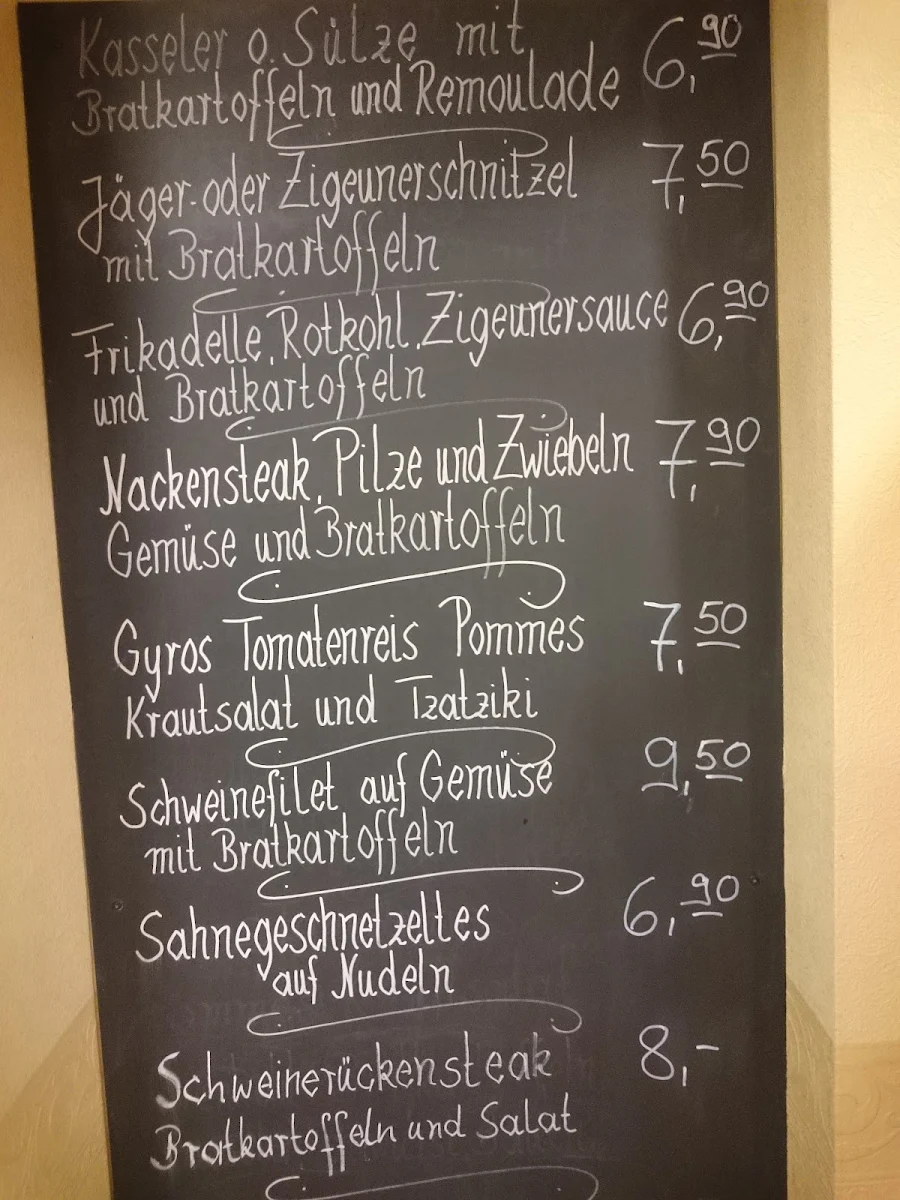 Kasseler o. Sülze mit 6,90
Bratkartoffeln und Remoulade
Jäger- oder Zigeunerschnitzel 7,50
mit Bratkartoffeln
Frikadelle, Rotkohl, Zigeunersauce 6,90
und Bratkartoffeln
Nackensteak, Pilze und Zwiebeln 7,90
Gemüse und Bratkartoffeln
Gyros Tomatenreis Pommes 7,50
Krautsalat und Tzatziki
Schweinefilet auf Gemüse 9,50
mit Bratkartoffeln
Sahnegeschnetzeltes 6,90
auf Nudeln
Schweinerückensteak 8,-
Bratkartoffeln und Salat